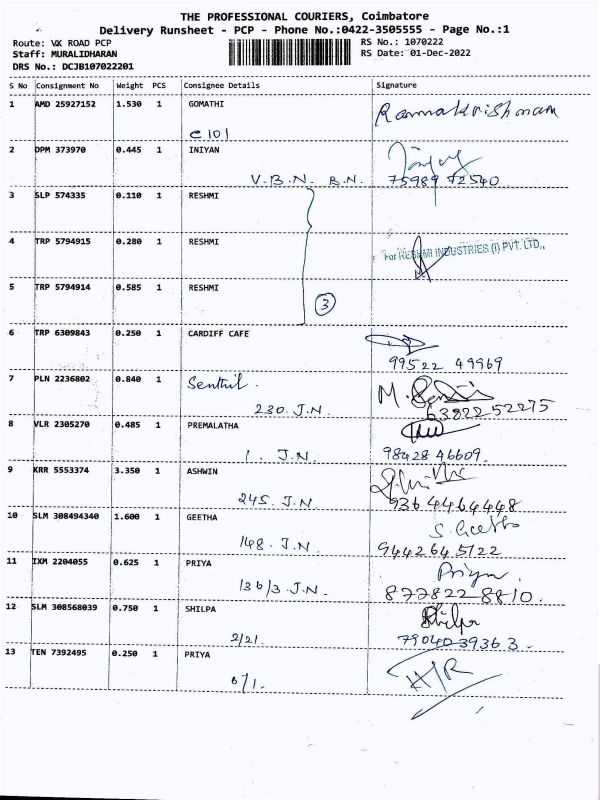 THE PROFESSIONAL COURIERS, Coimbatore
Delivery Runsheet - PCP - Phone No.:0422-3505555 - Page No.:1
Route: VK ROAD PCP
RS No.: 1070222
Staff: MURALIDHARAN
RS Date: 01-Dec-2022
DRS No.: DCJB107022201
S No Consignment No Weight PCS Consignee Details Signature
1 AMD 25927152 1.530 1 GOMATHI Ramakrishnan
C 101
2 DPM 373970 0.445 1 INIYAN
V.B.N. B.N. 75989 72540
3 SLP 574335 0.110 1 RESHMI
4 TRP 5794915 0.280 1 RESHMI For RESHMI INDUSTRIES (I) PVT. LTD.,
5 TRP 5794914 0.585 1 RESHMI
3
6 TRP 6309843 0.250 1 CARDIFF CAFE
99522 49969
7 PLN 2236802 0.840 1 Senthil.
230. J.N. 63822 52275
8 VLR 2305270 0.485 1 PREMALATHA
1. J.N. 98428 46609.
9 KRR 5553374 3.350 1 ASHWIN
245. J.N 9364464448
10 SLM 308494340 1.600 1 GEETHA S. Geetha
148. J.N 9442645122
11 IXM 2204055 0.625 1 PRIYA Priya
136/3 J.N. 877822 8810.
12 SLM 308568039 0.750 1 SHILPA Shilpa
2/21. 7904039363.
13 TEN 7392495 0.250 1 PRIYA H/R
6/1.